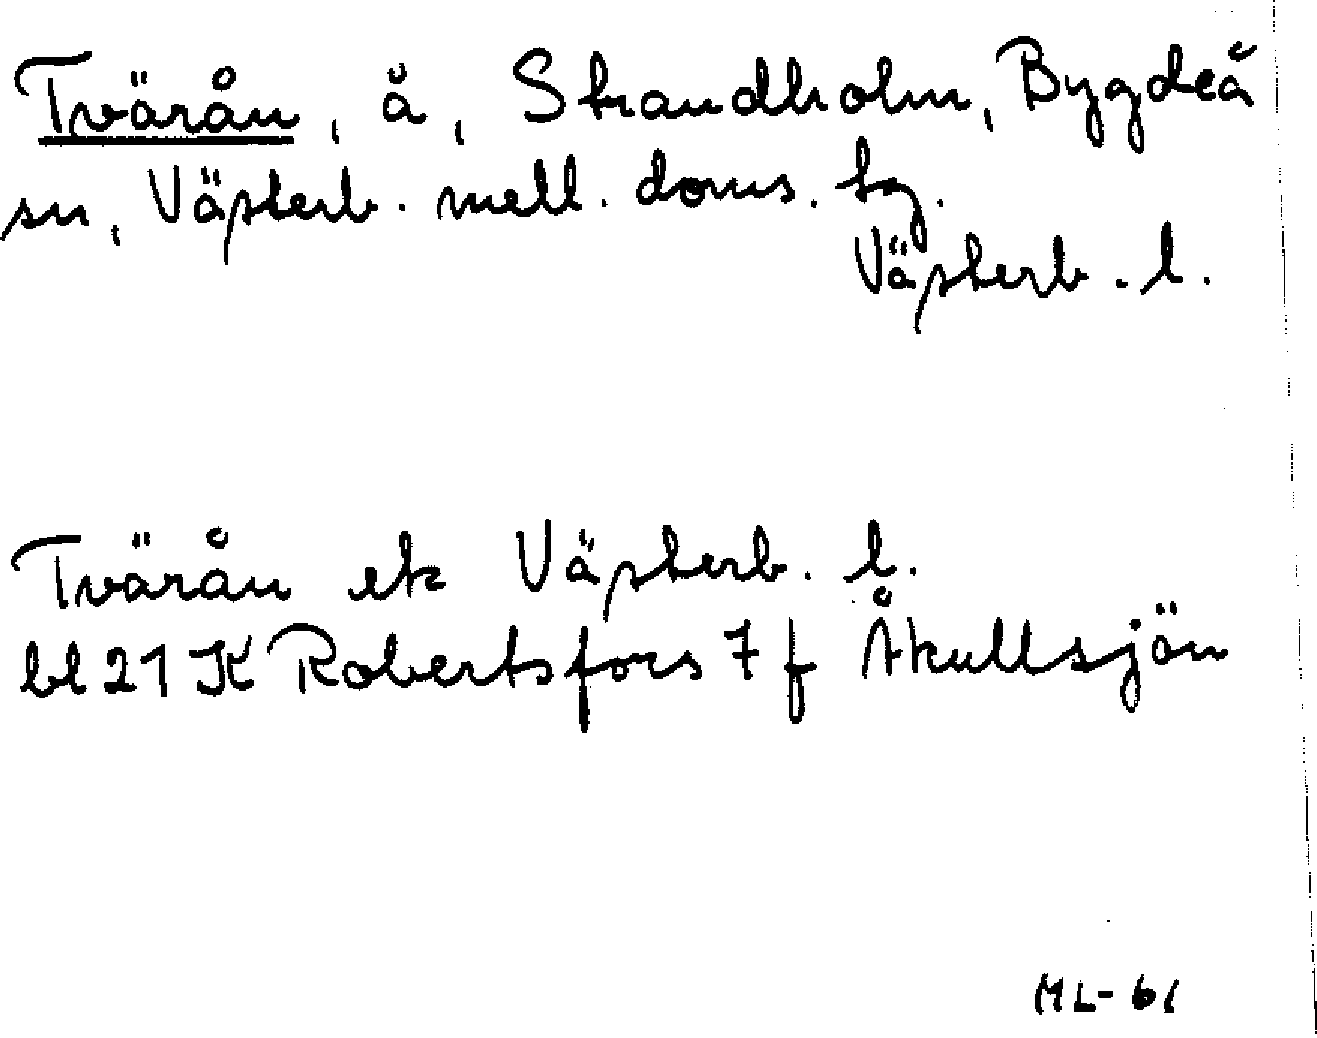 Tvärån, å, Strandholm, Bygdeå
sn, Västerb. mell. doms. tg.
Västerb. l.
Tvärån ek Västerb. l.
bl 21 K Robertsfors 7 f Åkullsjön
ML-61